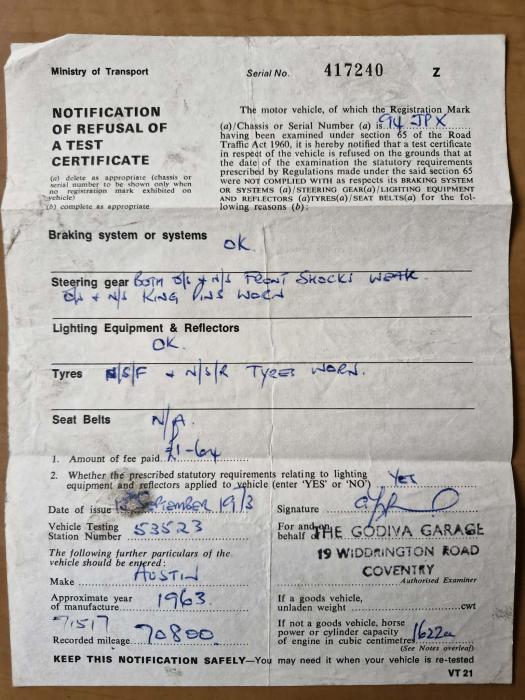 Ministry of Transport
Serial No. 417240 Z
NOTIFICATION
OF REFUSAL OF
A TEST
CERTIFICATE
(a) delete as appropriate (chassis or
serial number to be shown only when
no registration mark exhibited on
vehicle)
(b) complete as appropriate
The motor vehicle, of which the Registration Mark
(a)/Chassis or Serial Number (a) is 94 JPX
having been examined under section 65 of the Road
Traffic Act 1960, it is hereby notified that a test certificate
in respect of the vehicle is refused on the grounds that at
the date of the examination the statutory requirements
prescribed by Regulations made under the said section 65
were NOT COMPLIED WITH as respects its BRAKING SYSTEM
OR SYSTEMS (a)/STEERING GEAR(a)/LIGHTING EQUIPMENT
AND REFLECTORS (a)TYRES(a)/SEAT BELTS(a) for the fol-
lowing reasons (b):
Braking system or systems OK.
Steering gear BOTH O/S & N/S FRONT SHOCKS WEAK
O/S & N/S KING PINS WORN
Lighting Equipment & Reflectors
OK.
Tyres N/S/F & N/S/R TYRES WORN.
Seat Belts N/A.
1. Amount of fee paid £1-64
2. Whether the prescribed statutory requirements relating to lighting
equipment and reflectors applied to vehicle (enter 'YES' or 'NO') YES
Date of issue
Signature
Vehicle Testing
Station Number 53523
For and on
behalf of THE GODIVA GARAGE
19 WIDDRINGTON ROAD
COVENTRY
Authorised Examiner
The following further particulars of the
vehicle should be entered:
Make AUSTIN
Approximate year
of manufacture 1963
71517
Recorded mileage 70800
If a goods vehicle,
unladen weight cwt
If not a goods vehicle, horse
power or cylinder capacity
of engine in cubic centimetres 1622cc
(See Notes overleaf)
KEEP THIS NOTIFICATION SAFELY—You may need it when your vehicle is re-tested
VT 21